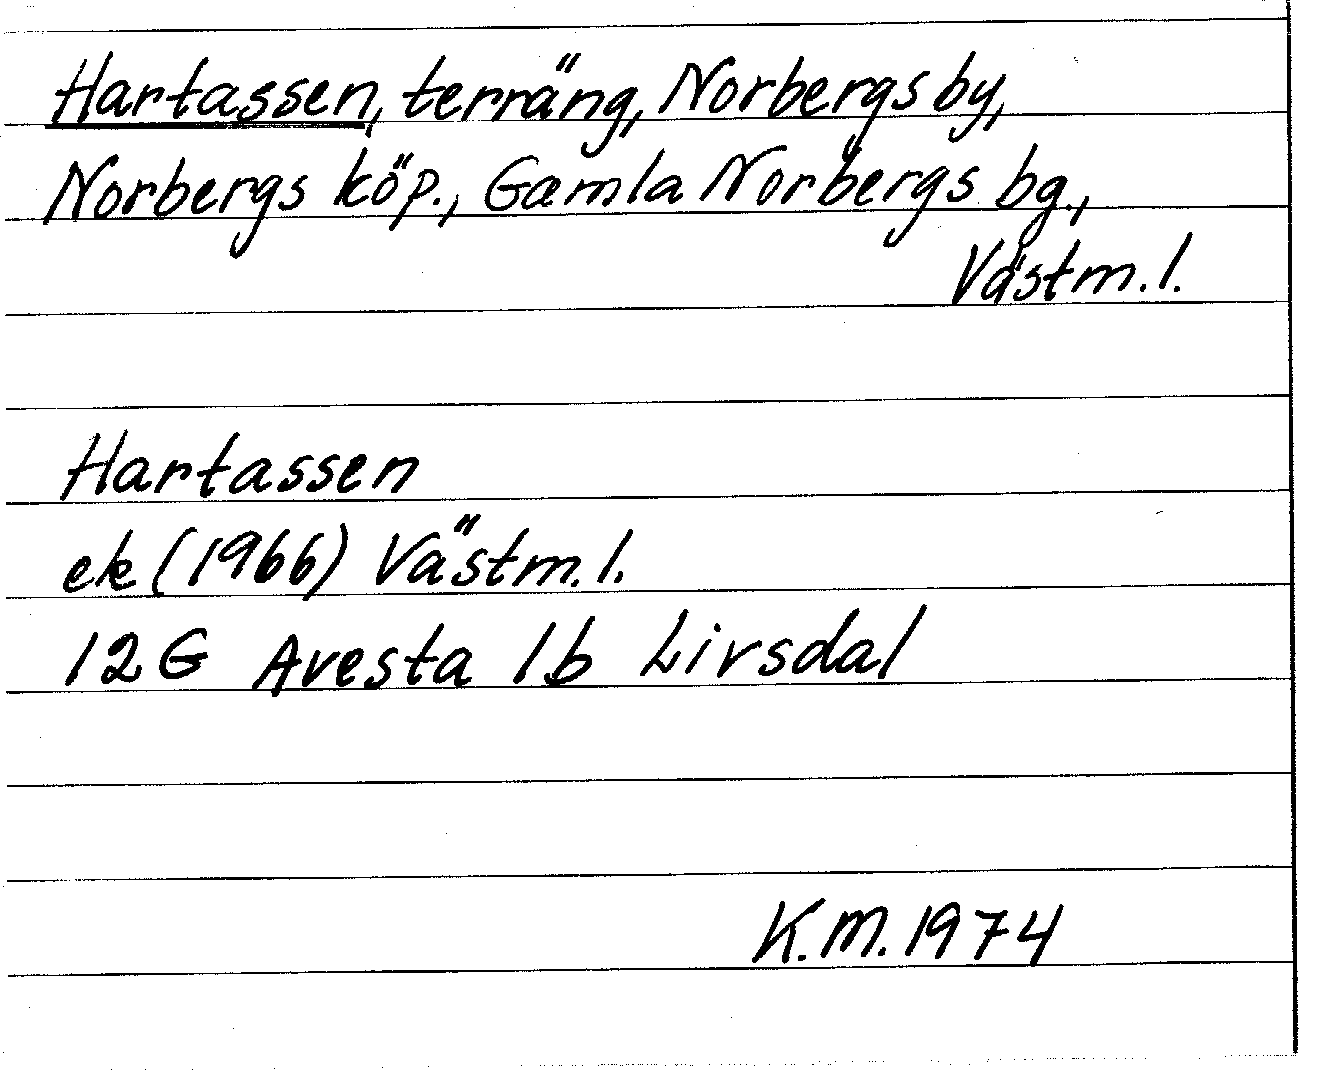 Hartassen, terräng, Norbergsby,
Norbergs köp., Gamla Norbergs bg.,
Västm.l.
Hartassen
ek (1966) Västm.l.
12G Avesta 1b Livsdal
K.M. 1974